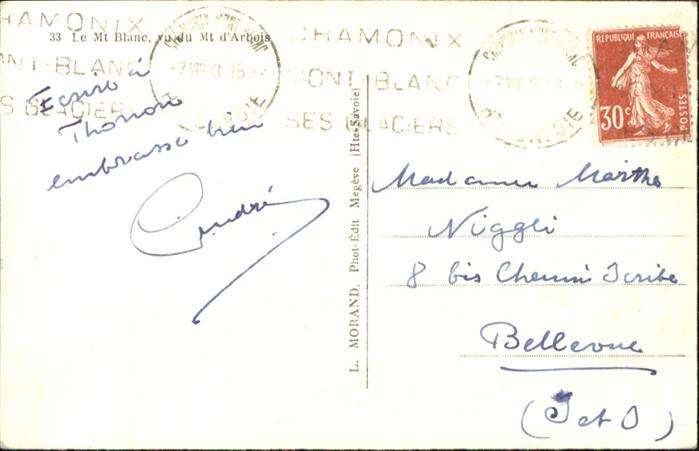 33 Le Mt Blanc, vu du Mt d'Arbois
CHAMONIX
MONT-BLANC
SES GLACIERS
CHAMONIX
MONT-BLANC
SES GLACIERS
REPUBLIQUE FRANÇAISE
30c
POSTES
Ecrire à
Thonon
embrasse bien
André
L. MORAND, Phot-Édit Megève (Hte-Savoie)
Madame Marthe
Niggli
8 bis Chemin Scribe
Bellevue
(S et O)